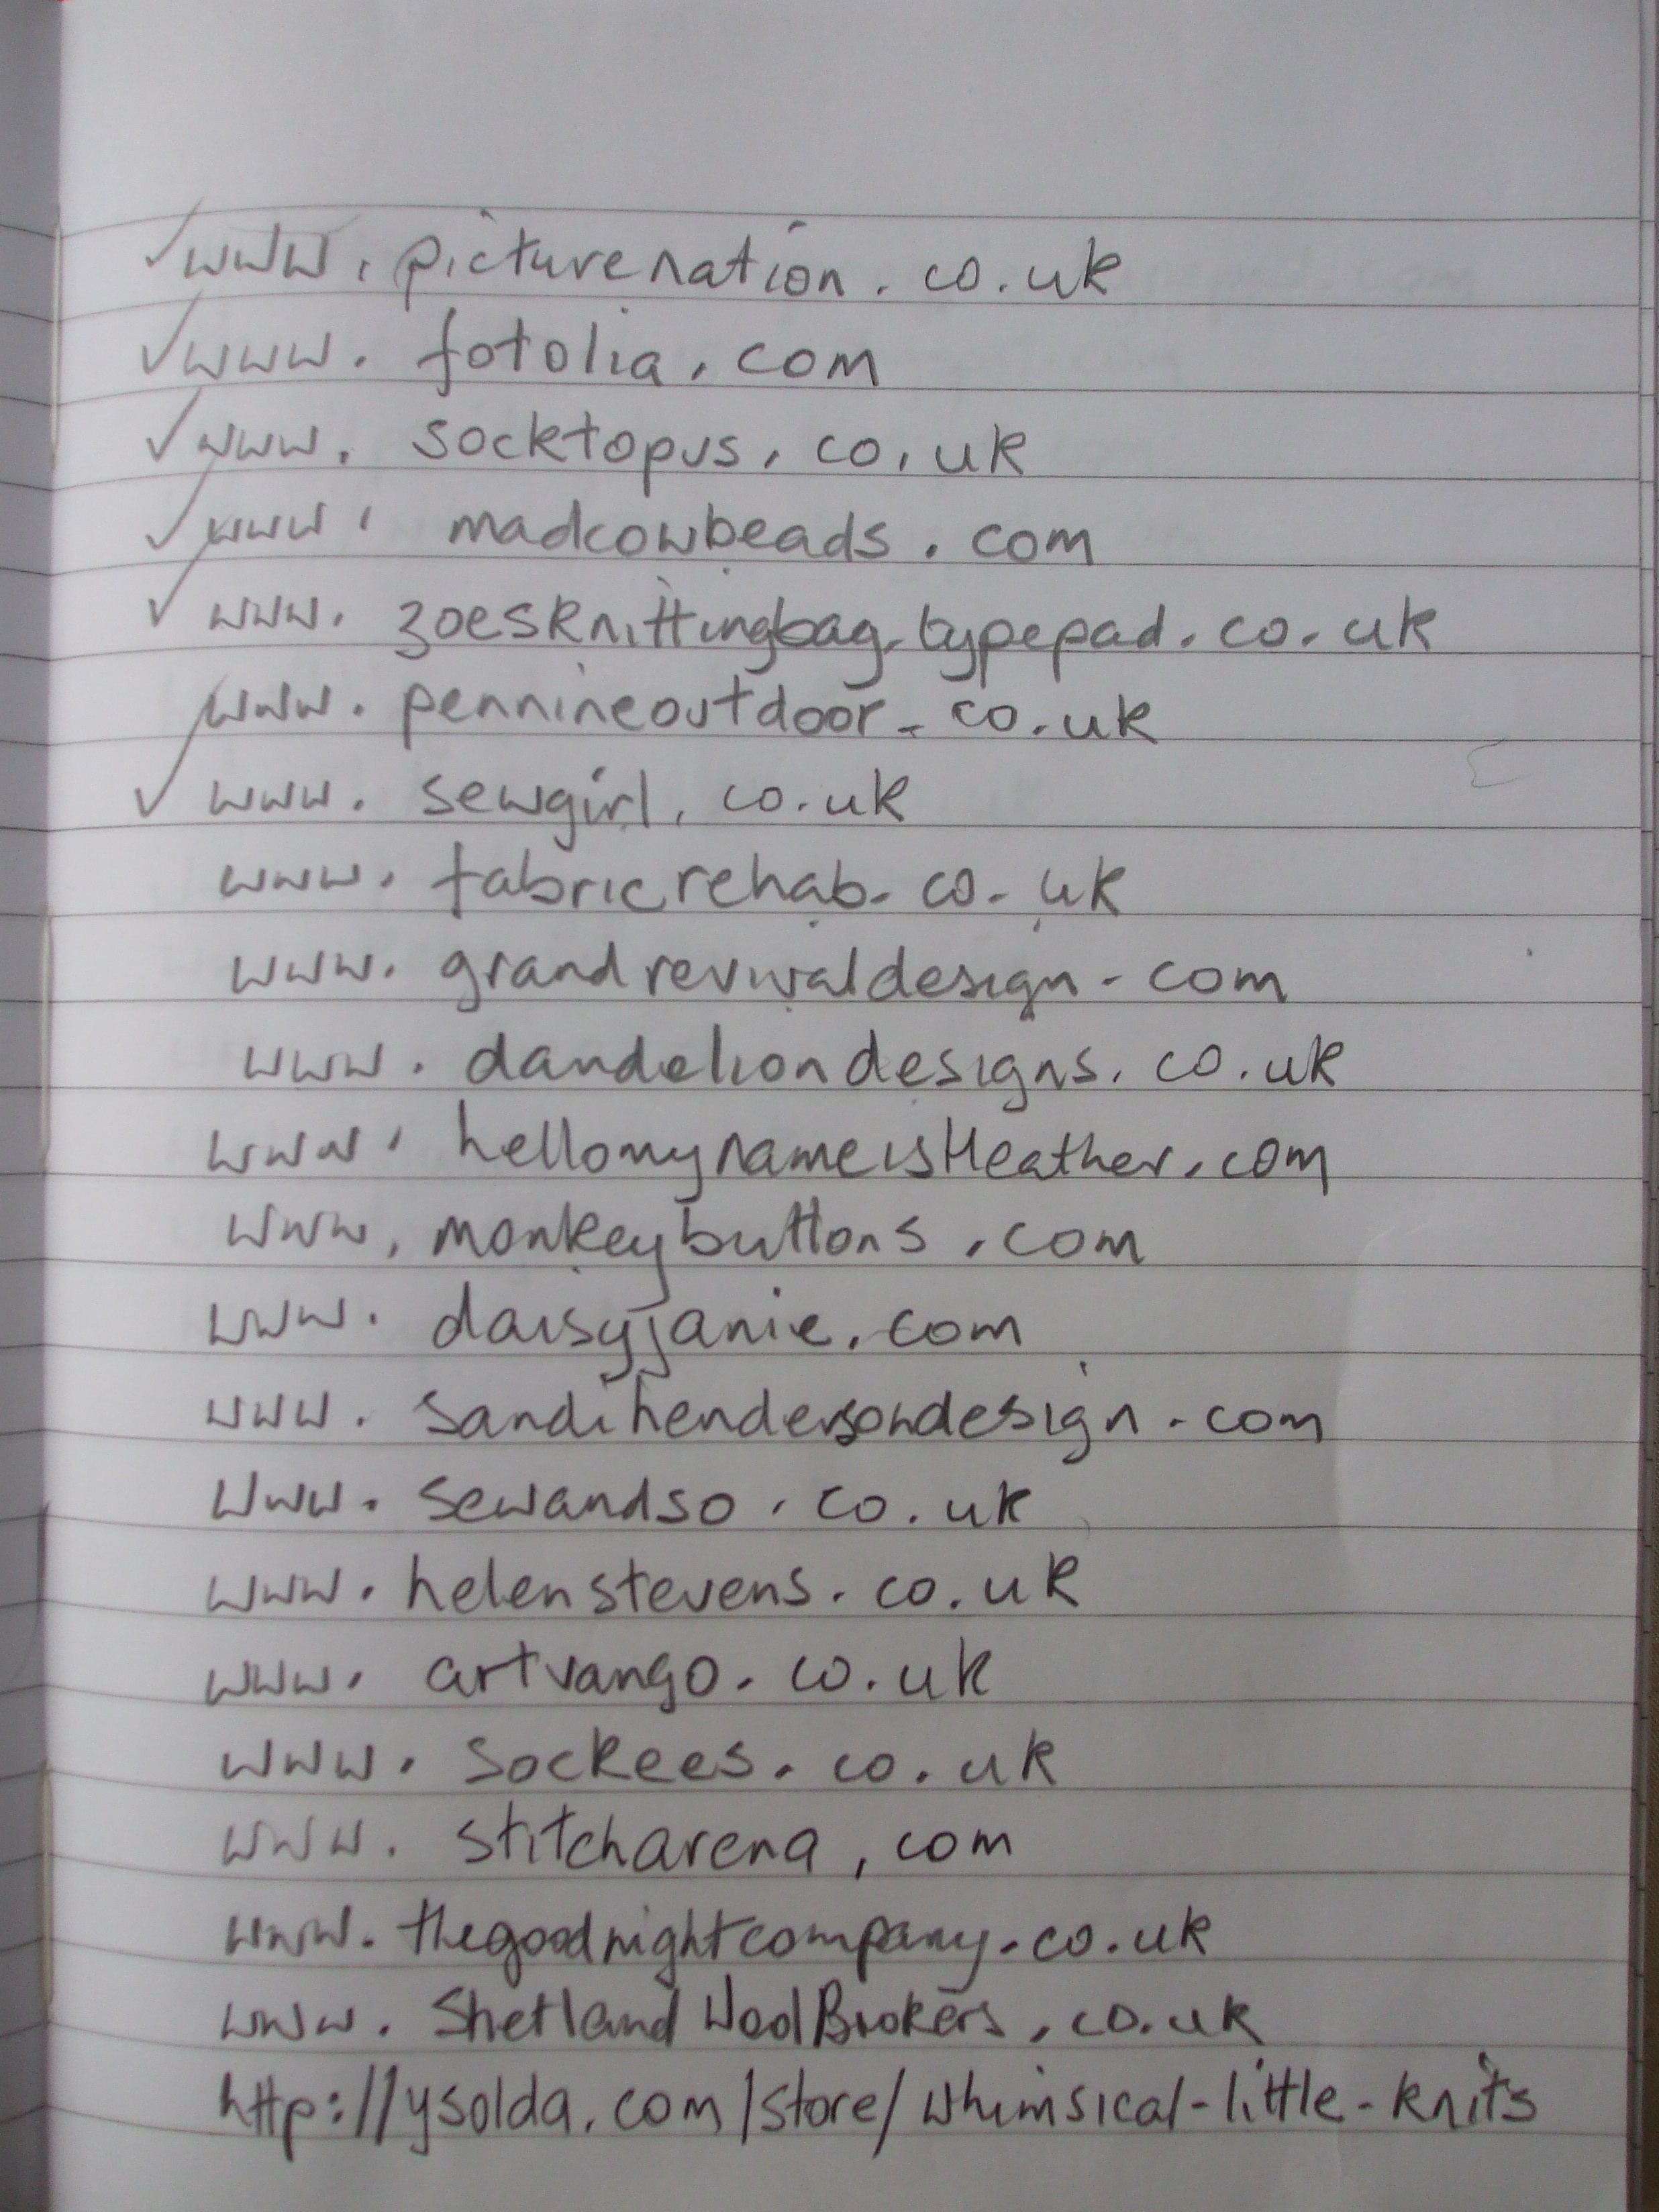 ✓ www.picturenation.co.uk
✓ www.fotolia.com
✓ www.socktopus.co.uk
✓ www.madcowbeads.com
✓ www.zoesknittingbag.typepad.co.uk
www.pennineoutdoor.co.uk
✓ www.sewgirl.co.uk
www.fabricrehab.co.uk
www.grandrevivaldesign.com
www.dandeliondesigns.co.uk
www.hellomynameisHeather.com
www.monkeybuttons.com
www.daisyjanie.com
www.sandihendersondesign.com
www.sewandso.co.uk
www.helenstevens.co.uk
www.artvango.co.uk
www.sockees.co.uk
www.stitcharena.com
www.thegoodnightcompany.co.uk
www.ShetlandWoolBrokers.co.uk
http://ysolda.com/store/whimsical-little-knits